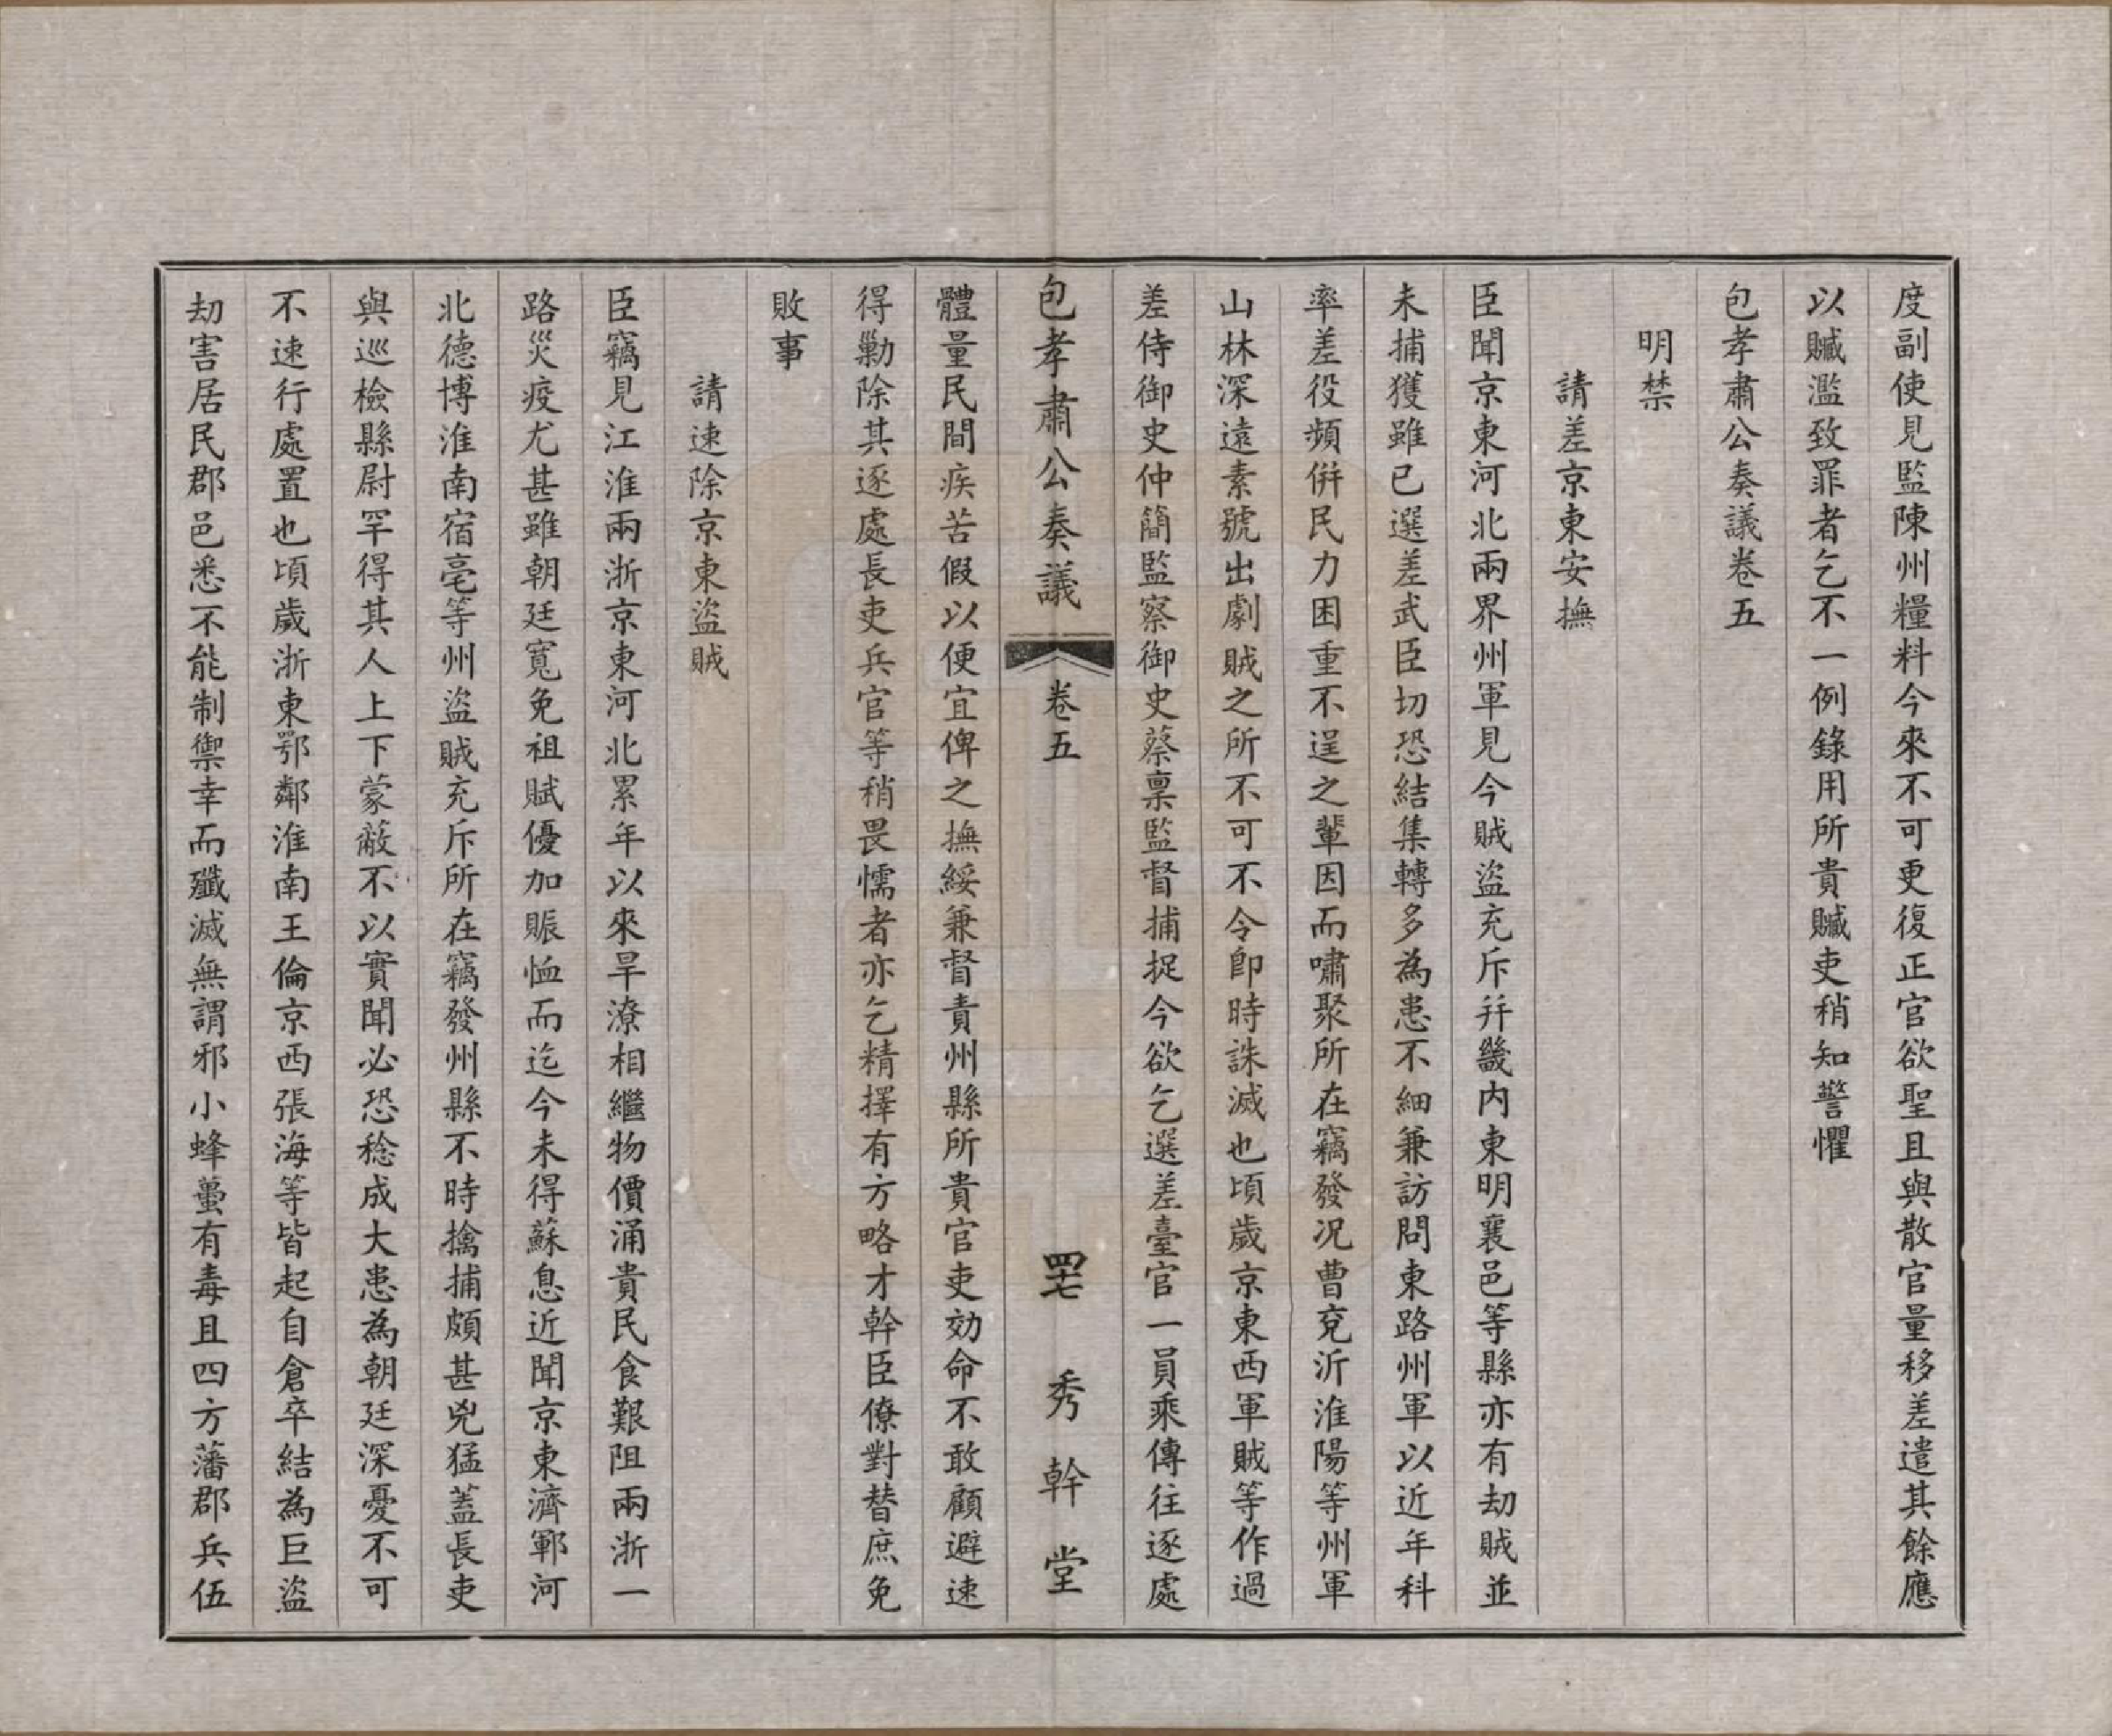 度副使見監陳州糧料今來不可更復正官欲聖且與散官量移差遣其餘應
以贓濫致罪者乞不一例錄用所貴贓吏稍知警懼
包孝肅公奏議卷五
明禁
請差京東安撫
臣聞京東河北兩界州軍見今賊盜充斥幷畿內東明襄邑等縣亦有刦賊並
未捕獲雖已選差武臣切恐結集轉多為患不細兼訪問東路州軍以近年科
率差役頻併民力困重不逞之輩因而嘯聚所在竊發況曹兗沂淮陽等州軍
山林深遠素號出劇賊之所不可不令卽時誅滅也頃歲京東西軍賊等作過
差侍御史仲簡監察御史蔡稟監督捕捉今欲乞選差臺官一員乘傳往逐處
包孝肅公奏議
卷五
四七
秀幹堂
體量民間疾苦假以便宜俾之撫綏兼督責州縣所貴官吏効命不敢顧避速
得勦除其逐處長吏兵官等稍畏懦者亦乞精擇有方略才幹臣僚對替庶免
敗事
請速除京東盜賊
臣竊見江淮兩浙京東河北累年以來旱潦相繼物價涌貴民食艱阻兩浙一
路災疫尤甚雖朝廷寬免祖賦優加賑恤而迄今未得蘇息近聞京東濟鄆河
北德博淮南宿亳等州盜賊充斥所在竊發州縣不時擒捕頗甚兇猛蓋長吏
與巡檢縣尉罕得其人上下蒙蔽不以實聞必恐稔成大患為朝廷深憂不可
不速行處置也頃歲浙東鄂鄰淮南王倫京西張海等皆起自倉卒結為巨盜
刦害居民郡邑悉不能制禦幸而殲滅無謂邪小蜂蠆有毒且四方藩郡兵伍